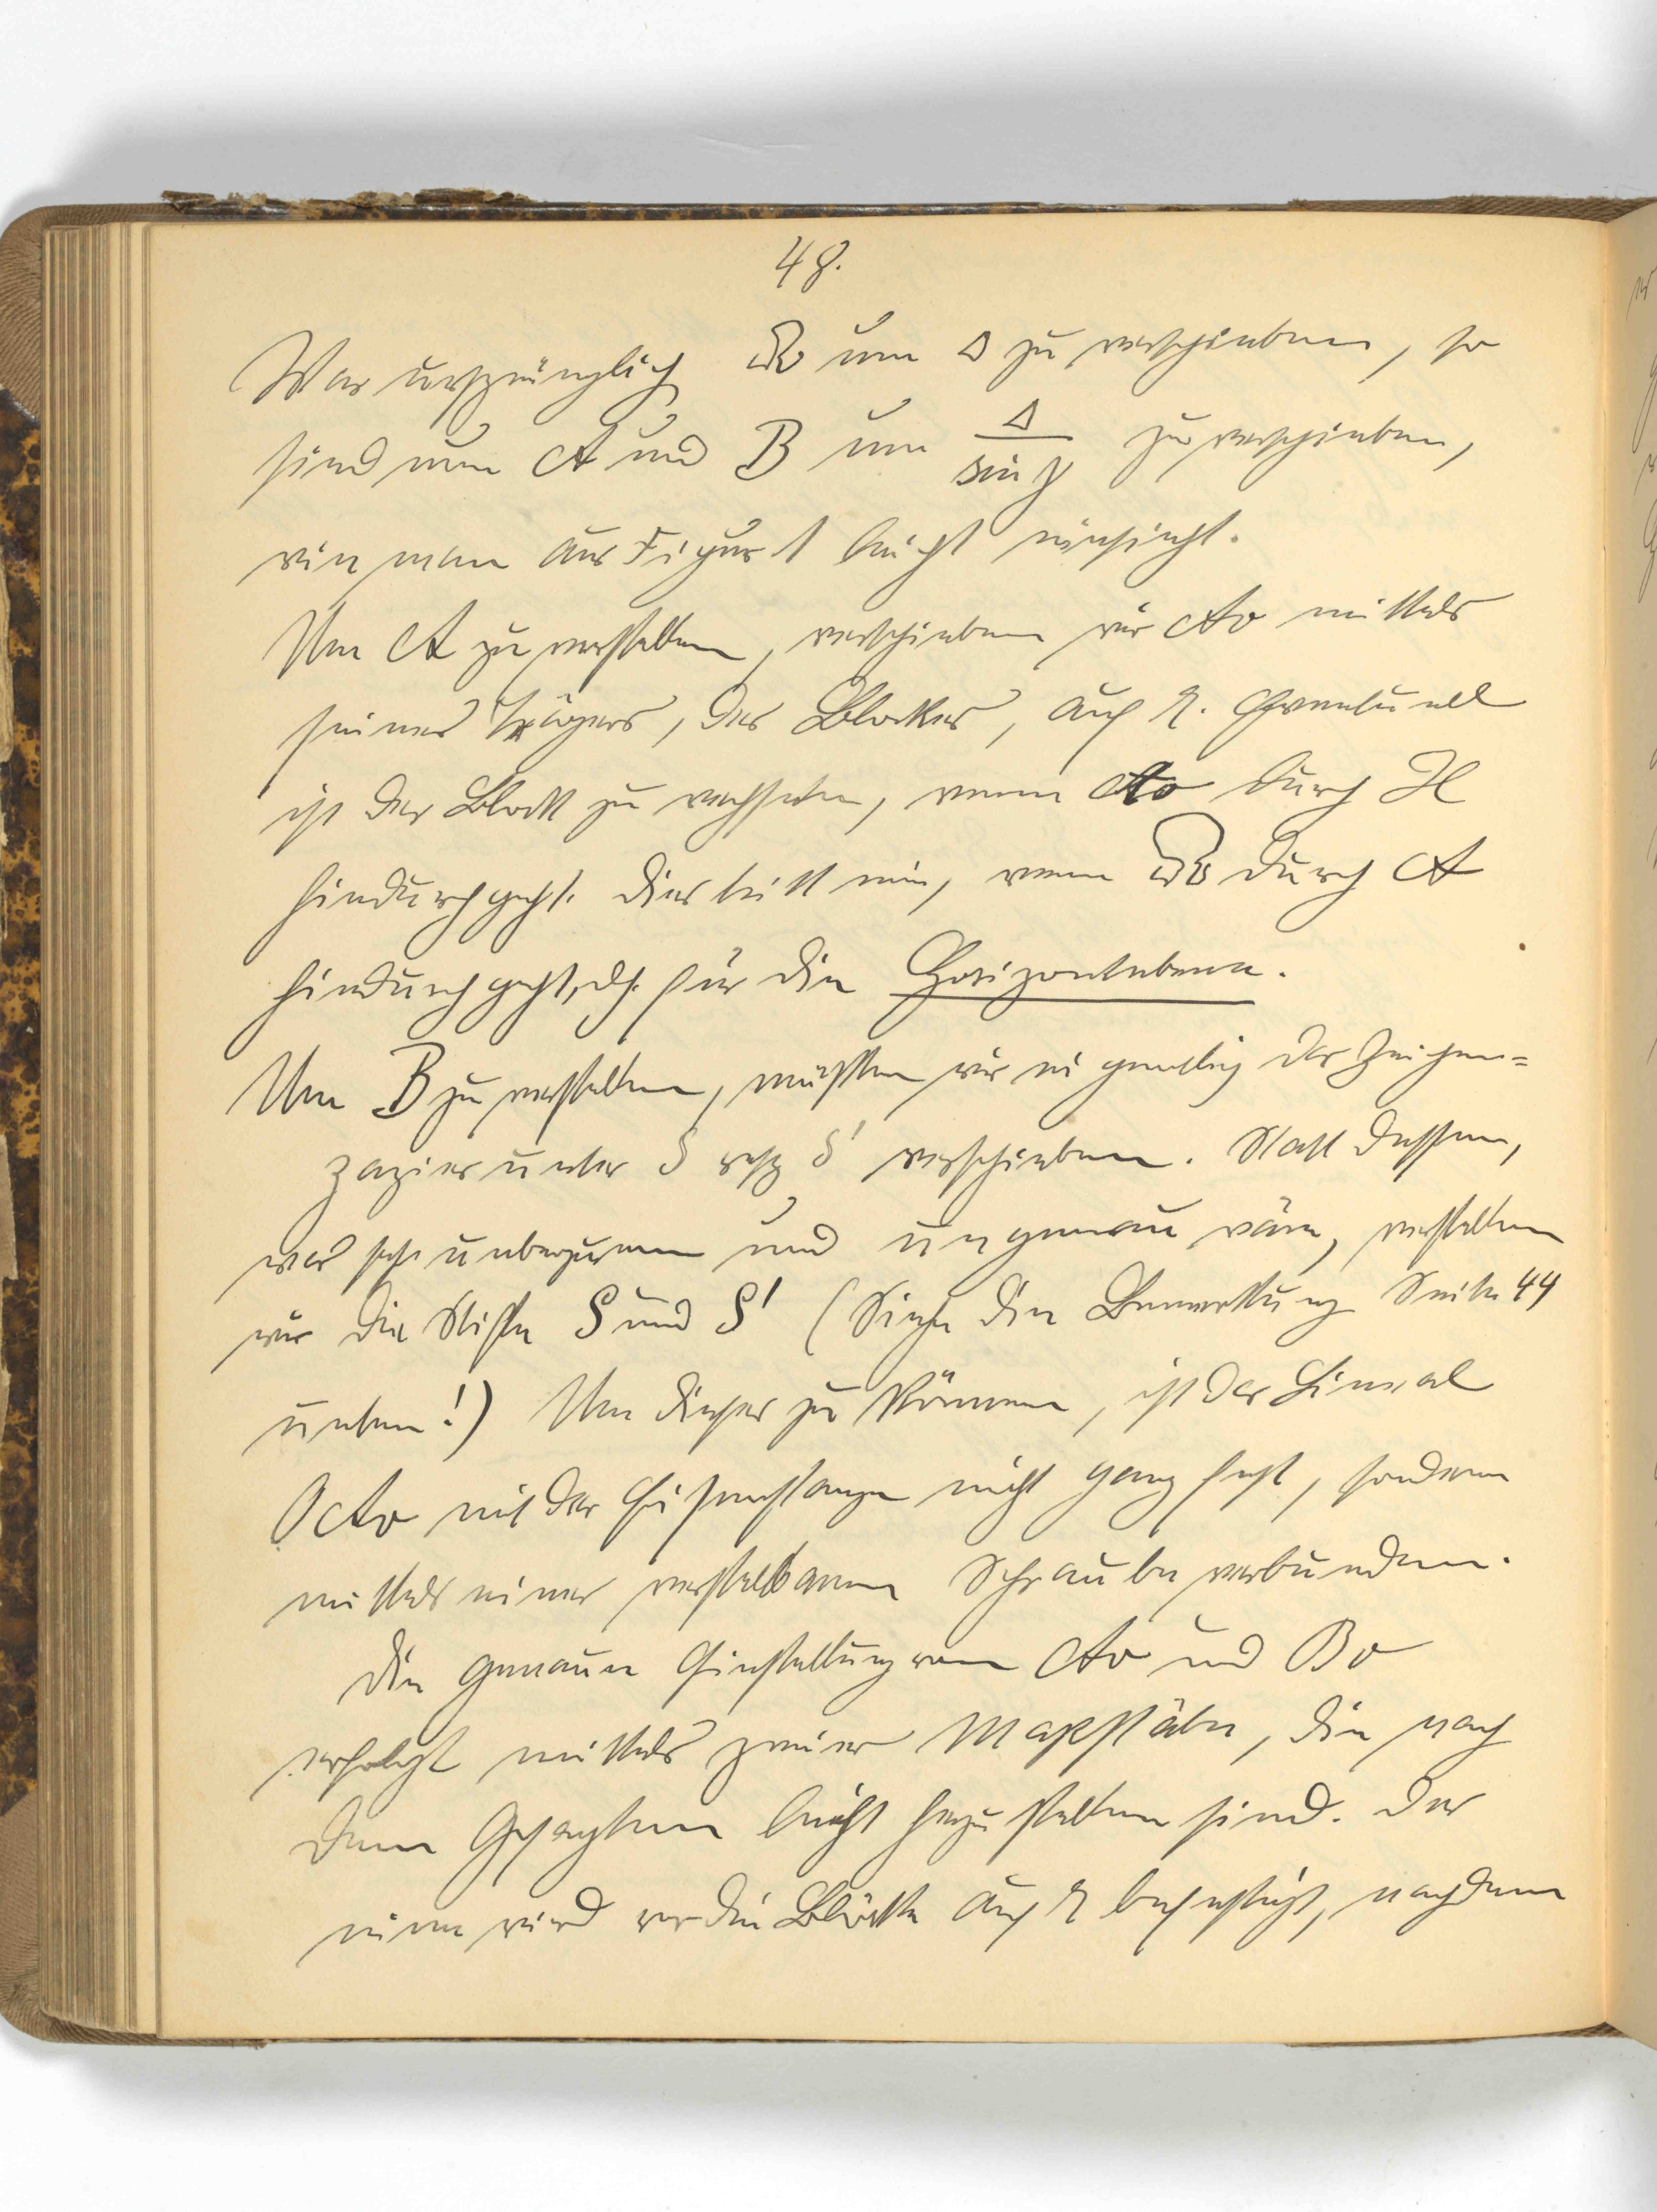 48.
War ursprünglich um Δ zu verschieben, so
sind nun A und B um Δ/sin γ zu verschieben,
wie man aus Figur 1 leicht einsieht.
Um A zu verstellen, verschieben wir A0 mittels
seines Trägers, des Blockes, auf . Eventuell
ist der Block zu wechseln, wenn A0 durch H
hindurchgeht. Dies tritt ein, wenn durch A
hindurchgeht, dh. für die Horizontebene.
Um B zu verstellen, müssten wir eigentlich das Zeichen=
papier unter S resp S' verschieben. Statt dessen,
was sehr unbequem und ungenau wäre, verstellen
wir die Stifte S und S' (Siehe die Bemerkung Seite 44
unten!) Um dieses zu können, ist das Lineal
OA0 mit der Eisenstange nicht ganz fest, sondern
mittels einer verstellbaren Schraube verbunden.
Die genaue Einstellung von A0 und B0
erfolgt mittels zweier Maßstäbe, die nach
dem Gesagten leicht herzustellen sind. Der
eine wird vor die Blöcke auf befestigt, nachdem